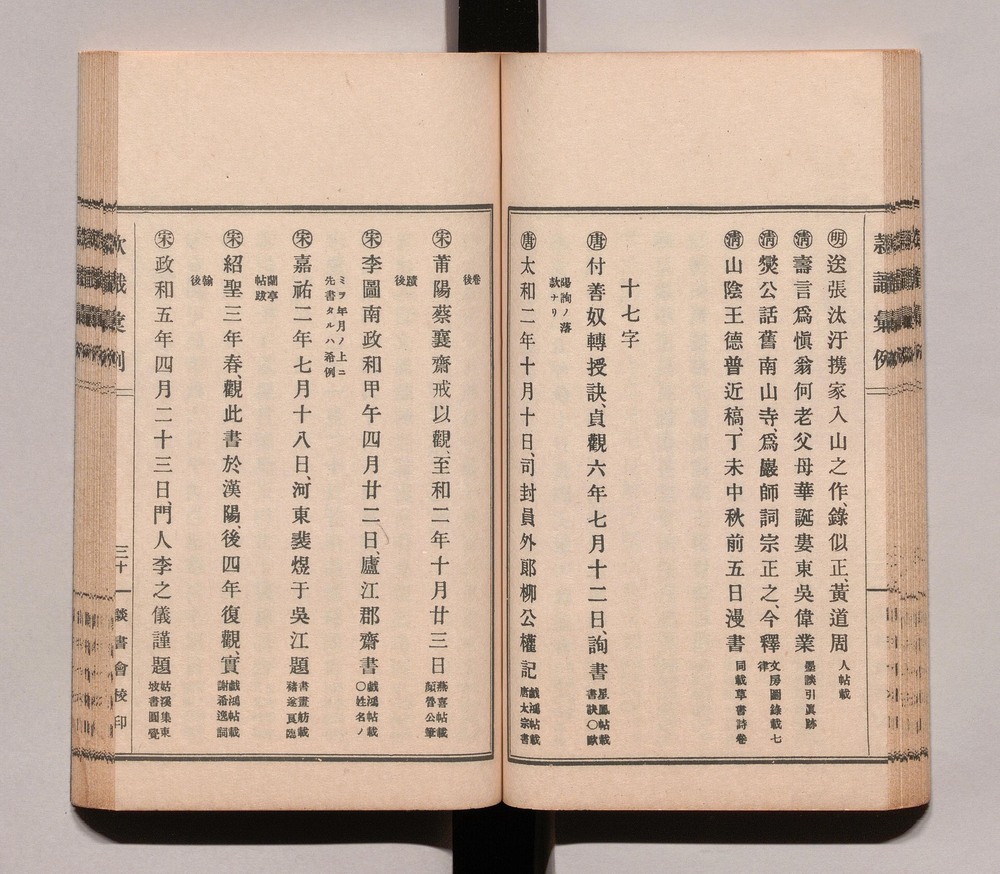 款識彙例
㊍送張汰汙携家入山之作、錄似正、黃道周 人帖載
㊍壽言爲愼翁何老父母華誕婁東吳偉業 墨談引眞跡
㊍爕公話舊南山寺、爲巖師詞宗正之、今釋 文房圖錄載七律
㊍山陰王德普近稿、丁未中秋前五日漫書 同載草書詩卷
十七字
㊍付善奴轉授訣、貞觀六年七月十二日、詢書 星鳳帖載書訣〇歐
陽詢ノ落款ナリ
㊍太和二年十月十日、司封員外郎柳公權記 戲鴻帖載唐太宗書
卷後
㊍莆陽蔡襄齋戒以觀、至和二年十月廿三日 燕喜帖載顏晉公筆
蹟後
㊍李圖南政和甲午四月廿二日、廬江郡齋書 戲鴻帖載〇姓名ノ
ミヲ年月ノ上ニ先書タルハ希例
㊍嘉祐二年七月十八日、河東裴煜于吳江題 書畫舫載褚遂良臨
蘭亭帖跋
㊍紹聖三年春、觀此書於漢陽、後四年復觀、實 戲鴻帖載謝希逸詞
翰後
㊍政和五年四月二十三日、門人李之儀謹題 姑溪集東坡書圓覺
款識彙例
三十一
談書會校印